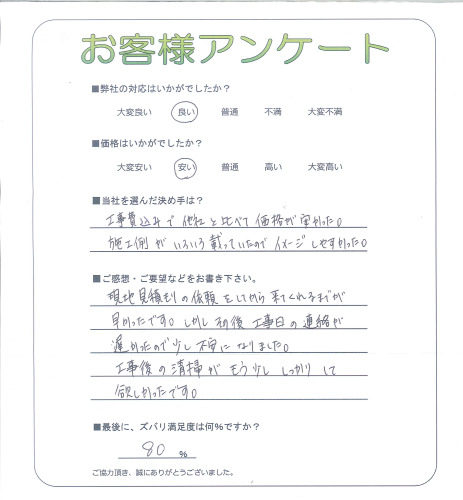 お客様アンケート
■弊社の対応はいかがでしたか？
大変良い 良い 普通 不満 大変不満
■価格はいかがでしたか？
大変安い 安い 普通 高い 大変高い
■当社を選んだ決め手は？
工事費込みで他社と比べて価格が安かった。
施工例がいろいろ載っていたのでイメージしやすかった。
■ご感想・ご要望などをお書き下さい。
現地見積もりの依頼をしてから来てくれるまでが
早かったです。しかしその後工事日の連絡が
遅かったので少し不安になりました。
工事後の清掃がもう少ししっかりして
欲しかったです。
■最後に、ズバリ満足度は何%ですか？
80 %
ご協力頂き、誠にありがとうございました。